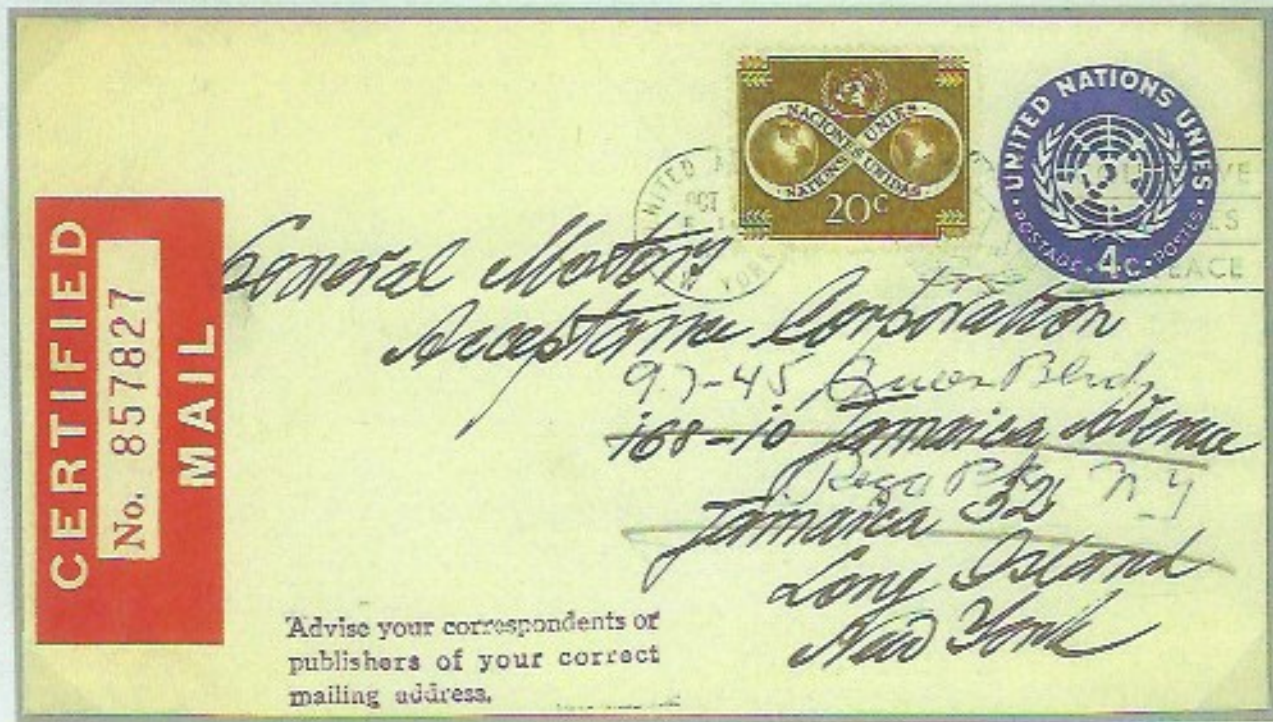 CERTIFIED
No. 857827
MAIL
NACIONES UNIES
NATIONS UNIDAS
20c
UNITED NATIONS UNIES
POSTAGE · 4c · POSTES
OCT
YORK
General Motors
Acceptance Corporation
97-45 Queen Blvd
168-10 Jamaica Avenue
Rego Pk N-Y
Jamaica 32
Long Island
New York
Advise your correspondents or
publishers of your correct
mailing address.